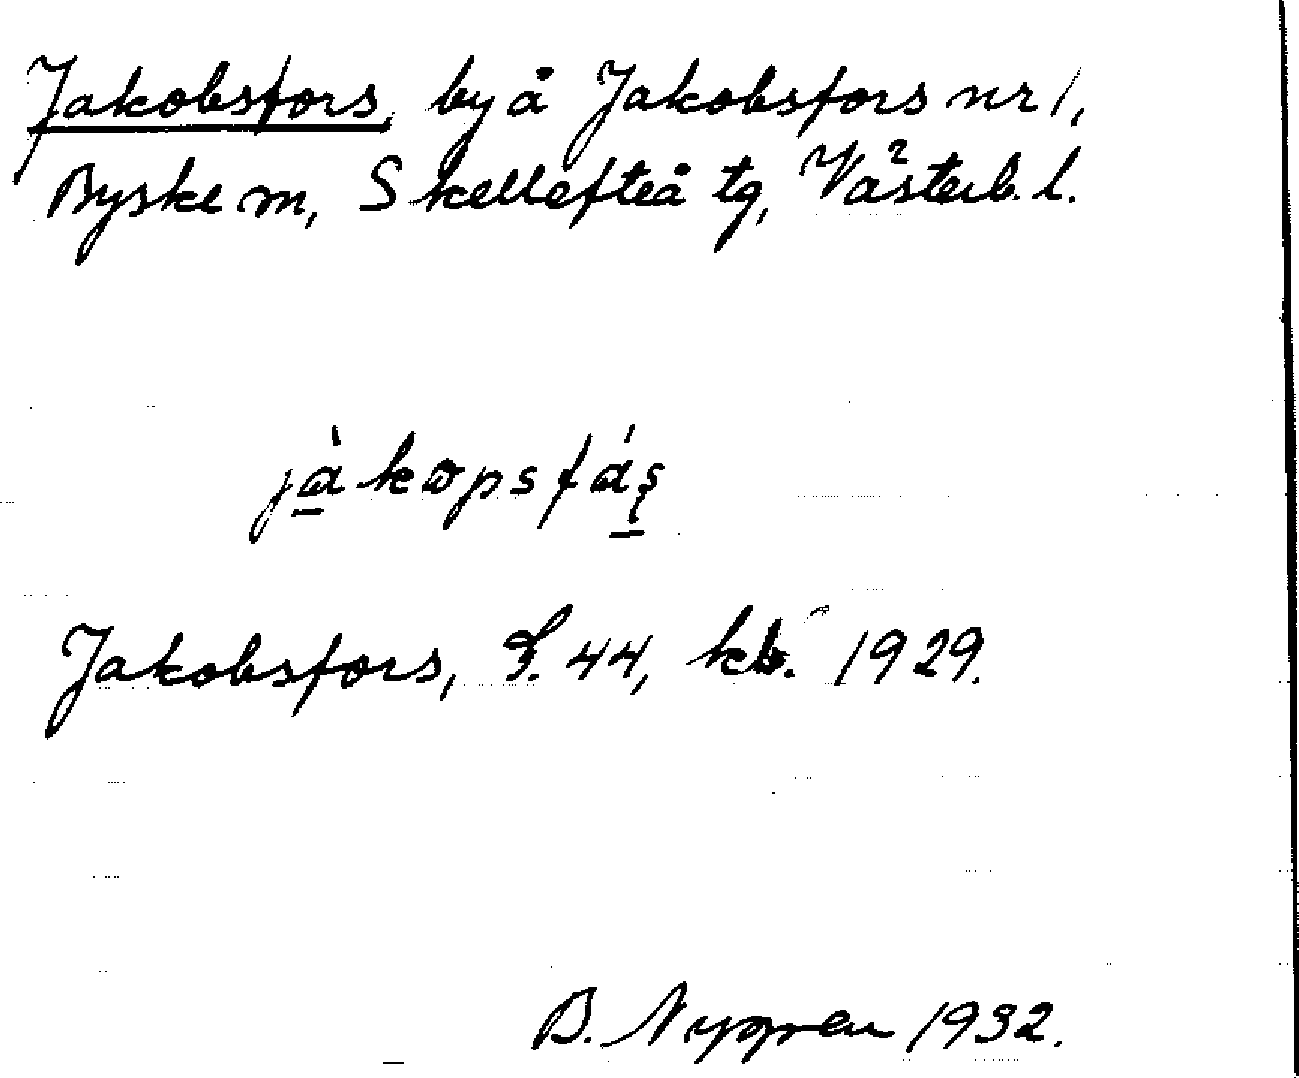 Jakobsfors, by å Jakobsfors nr 1,
Byske sn, Skellefteå tg, Västerb. l.
jàkopsfás̩
Jakobsfors, S. 44, kb. 1929.
B. Nygren 1932.